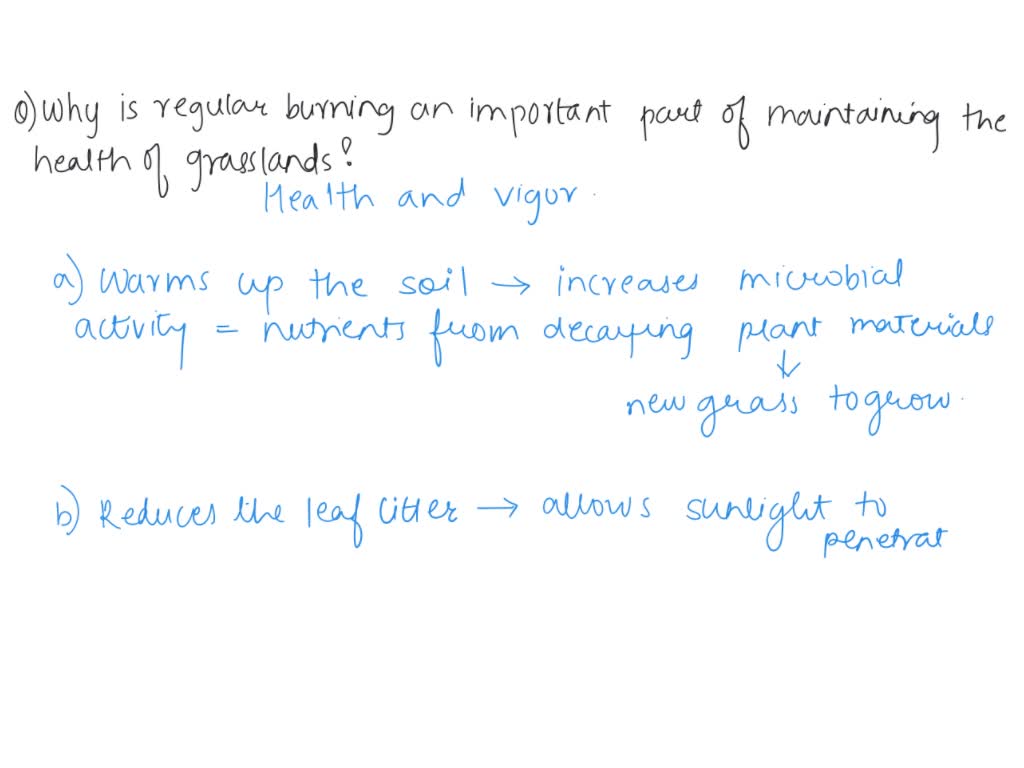 Q) Why is regular burning an important part of maintaining the
health of grasslands?
Health and vigor.
a) Warms up the soil → increases microbial
activity = nutrients from decaying plant materials
↓
new grass to grow.
b) Reduces the leaf litter → allows sunlight to
penetrat